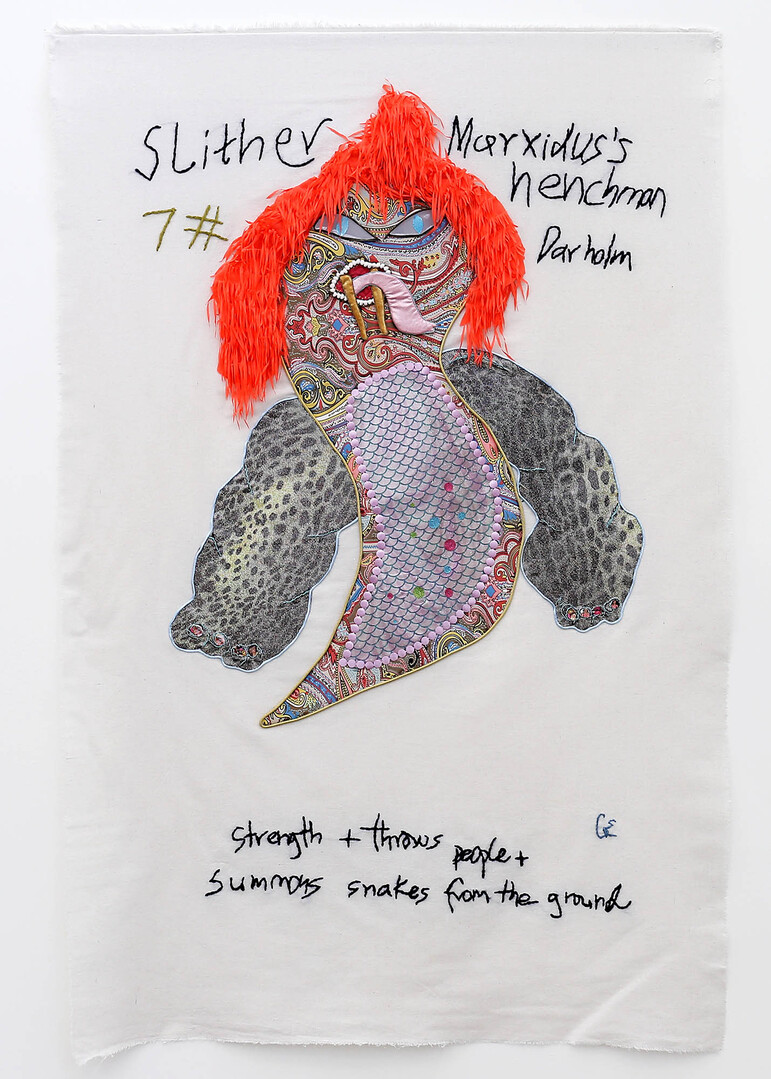 SLither
Marxidus's
henchman
7#
Darholm
strength + throws people +
summons snakes from the ground